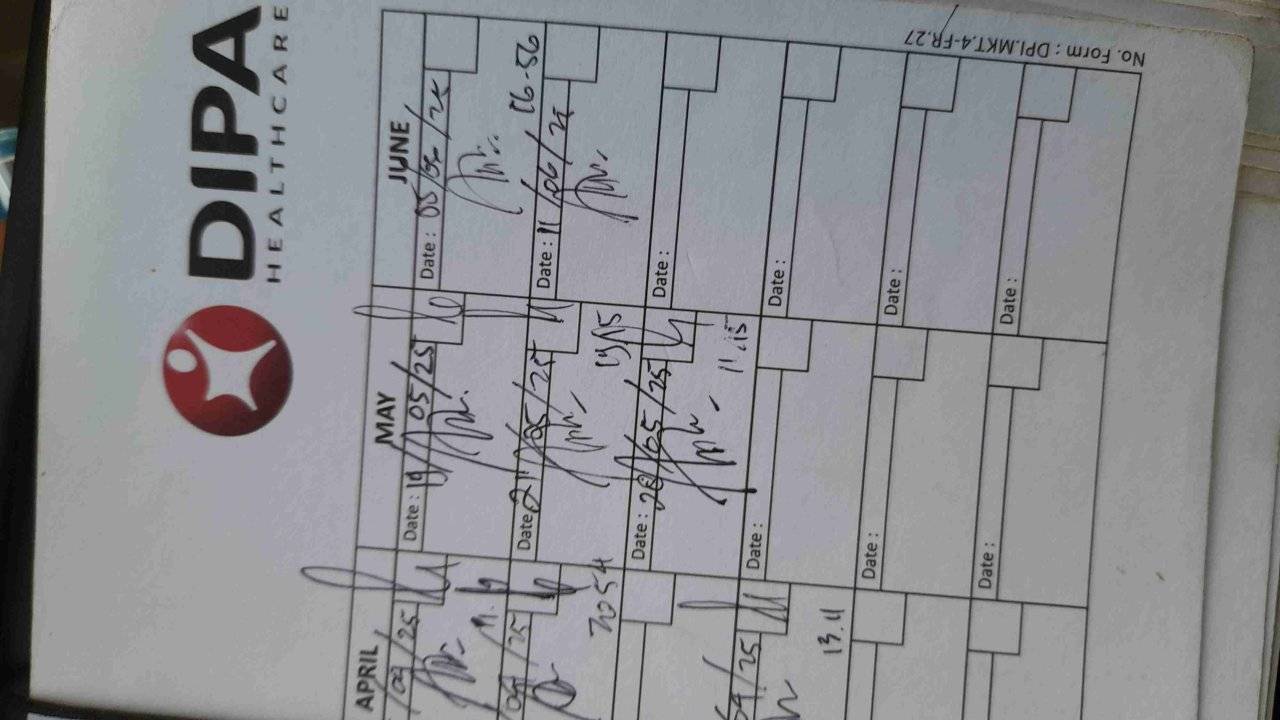 DIPA
HEALTHCARE
No. Form : DPI.MKT.4-FR.27
APRIL
/25
/25
2054
/25
13.11
MAY
Date : 19/05/25
Date 21/05/25
Date : 28/05/25
11.15
Date :
Date :
Date :
JUNE
Date : 05/06/25
16-56
Date : 11/06/25
Date :
Date :
Date :
Date :